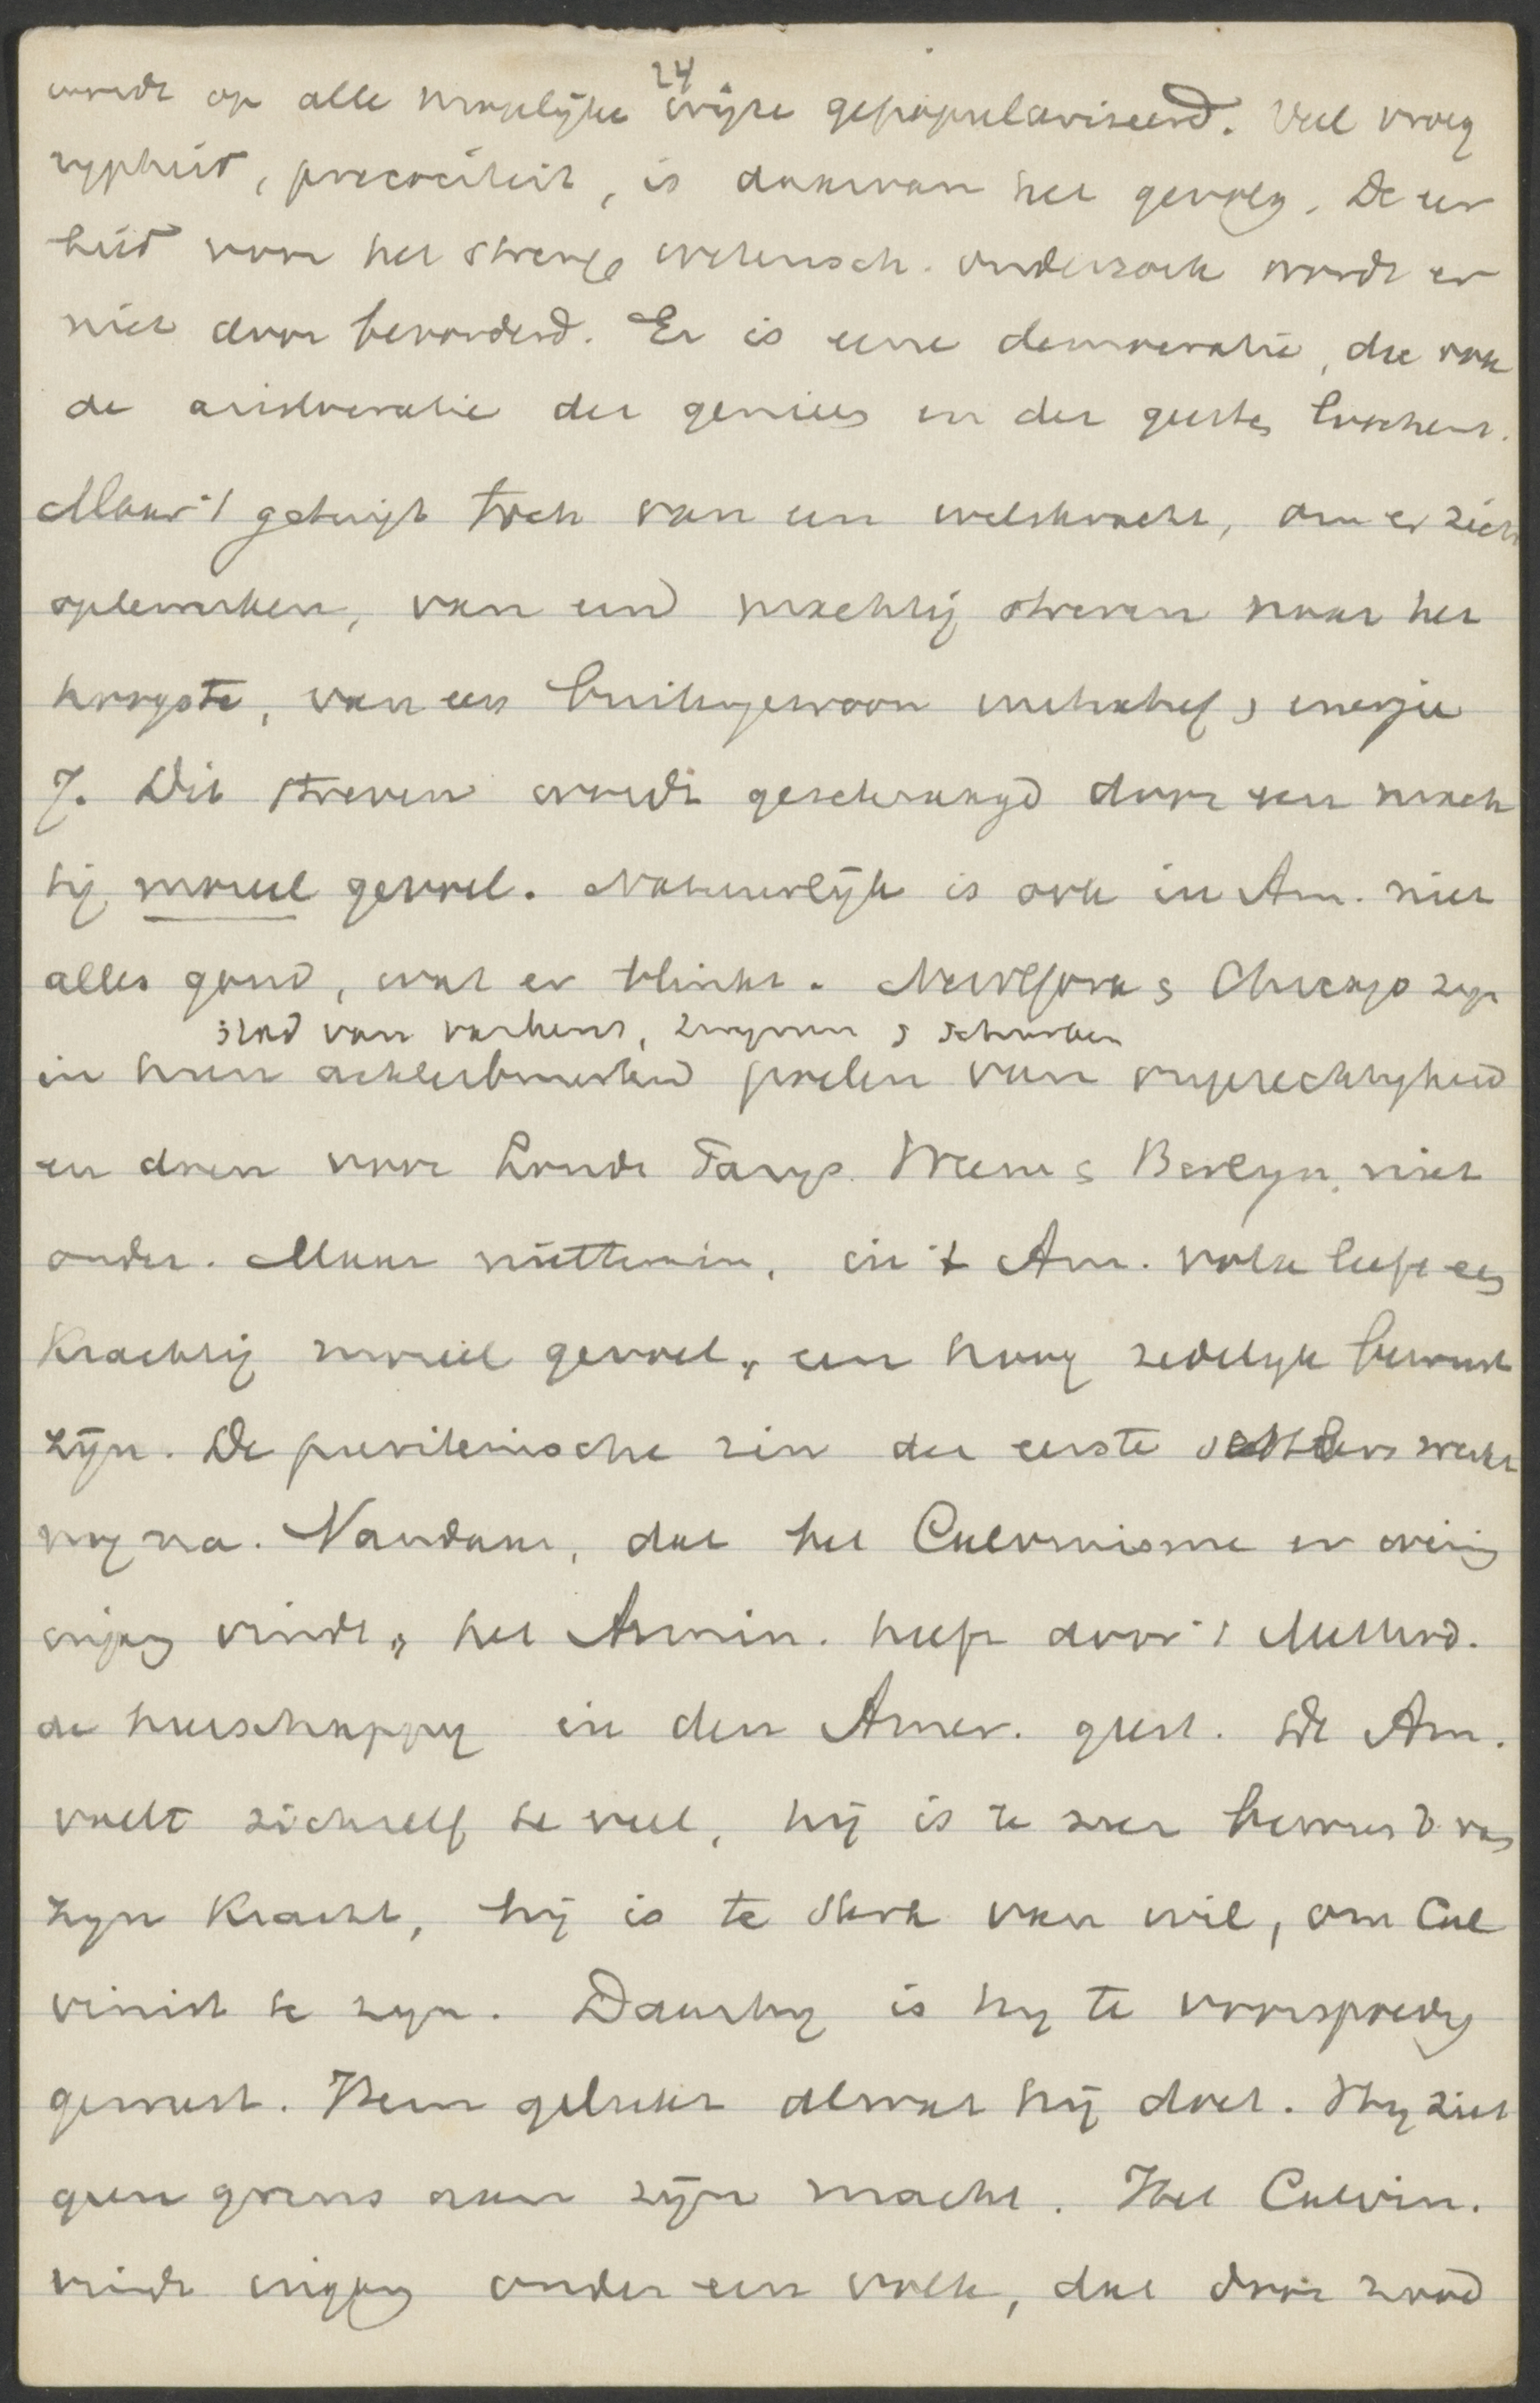 24
wordt op alle mogelijke wijze gepopulariseerd. Veel vroeg
rypheid, precociteit, is daarvan het gevolg. De eer
bied voor het strenge wetensch. onderzoek wordt er
niet door bevorderd. Er is eene democratie, die ook
de aristocratie der genieën en der geesten beschemt.
Maar 't getuigt toch van een wilskracht, om er zich
optewerken, van een machtig streven naar het
hoogste, van een buitengewoon initiatief & energie
7. Dit streven wordt geschraagd door een mach
tig moreel gevoel. Natuurlijk is ook in Am. niet
alles goud, wat er blinkt. NewYork & Chicago zyn
stad van varkens, zwynen & schurken
in hun achterbuurten poelen van ongerechtigheid
en doen voor Londe Parys. Weenen & Berlyn niet
onder. Maar niettemin, in 't Am. volk leeft een
krachtig moreel gevoel, een hoog zedelyk bewust
zijn. De puriteinsche zin der eerste settlers werkt
nog na. Vandaar, dat het Calvinisme er weinig
ingang vindt, het Armin. heeft door 't Method.
de heerschappy in den Amer. geest. De Am.
voelt zichzelf te veel, hij is te zeer bewust van
zyn kracht, hij is te sterk van wil, om Cal
vinist te zyn. Daarby is hy te voorspoedig
geweest. Hem gelukt alwat hij doet. Hy ziet
geen grens aan zijn macht. Het Calvin.
vindt ingang onder een volk, dat door zooveel